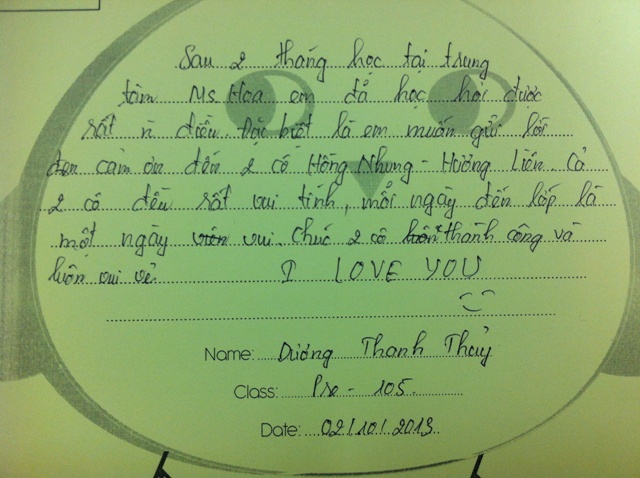 Sau 2 tháng học tại trung
tâm Ms Hoa em đã học hỏi được
rất n điều. Đặc biệt là em muốn gửi lời
cảm ơn đến 2 cô Hồng Nhung - Hương Liên. Cả
2 cô đều rất vui tính, mỗi ngày đến lớp là
một ngày vui. Chúc 2 cô thành công và
luôn vui vẻ.
I LOVE YOU
Name: Dương Thanh Thuỷ
Class: Pre - 105.
Date: 02/10/2013